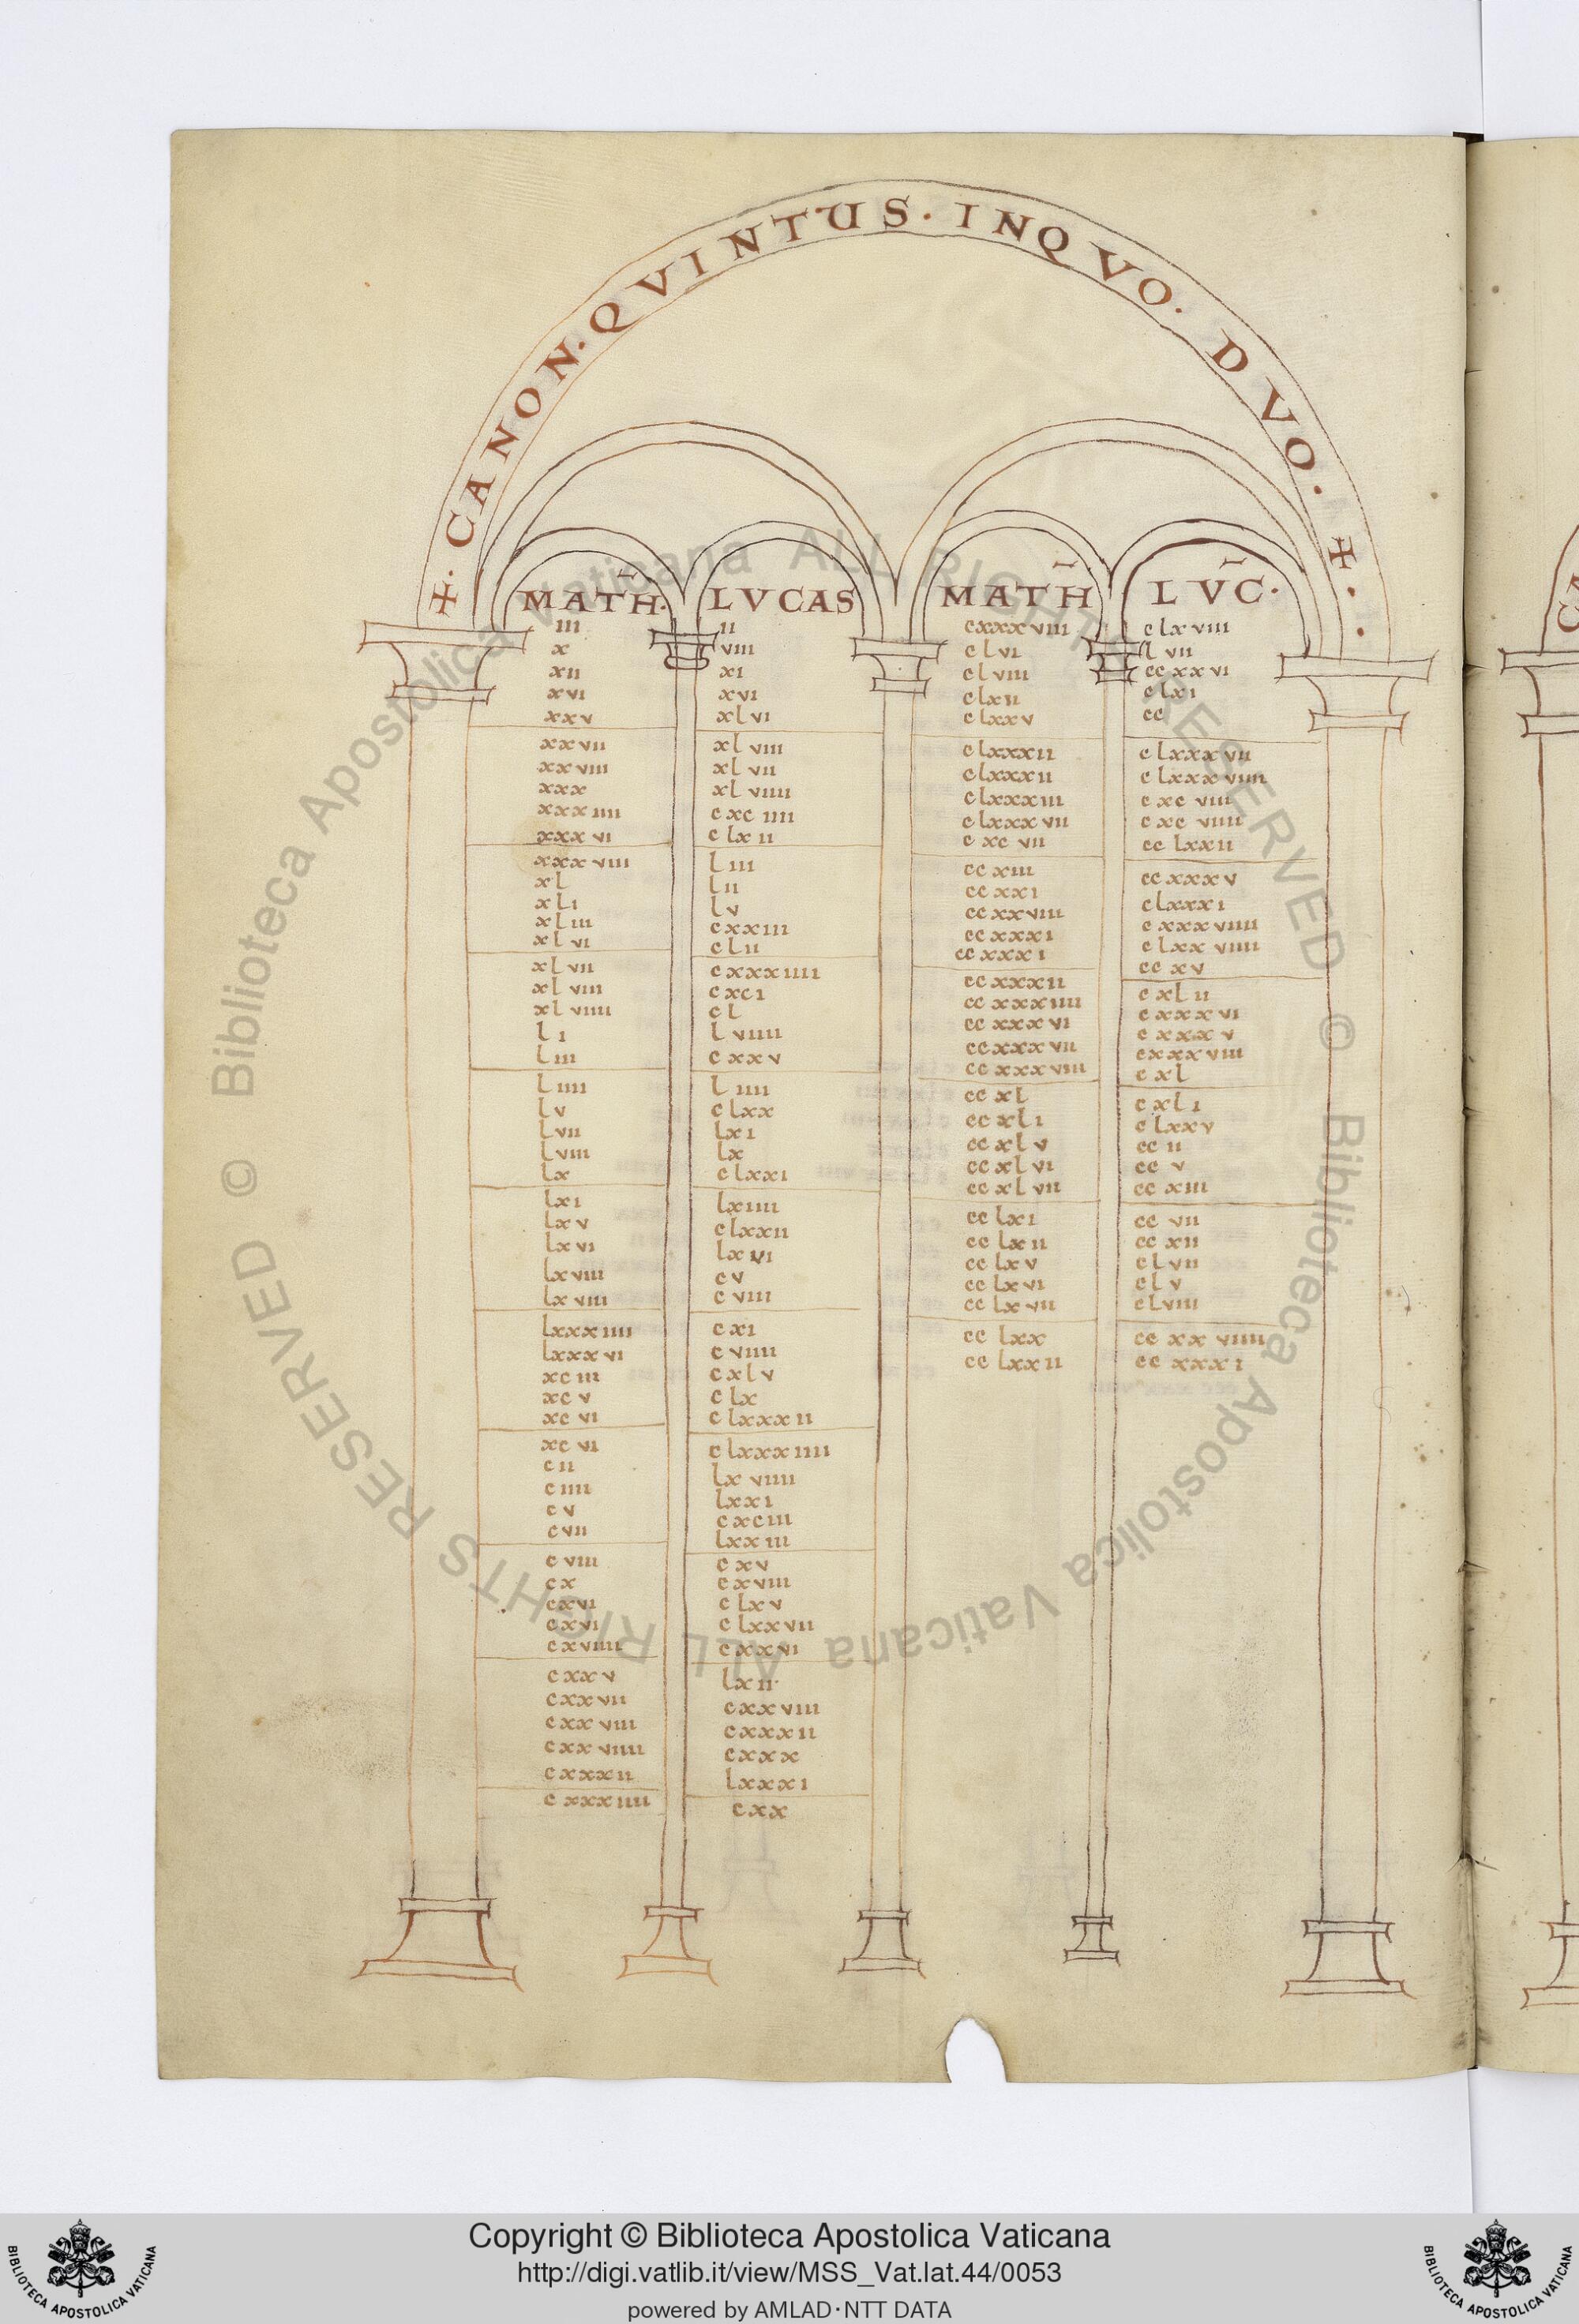 +. CANON. QVINTUS. INQVO. DVO. +
MATH. LVCAS MATH LVC.
III II cxxxxvIII clxvIII
x vIII clvI lvII
xII xI clvIII ccxxvI
xvI xvI clxII clxI
xxv xlvI clxxv cc
xxvII xlvIII clxxxII clxxxvII
xxvIII xlvII clxxxII clxxxvIIII
xxx xlvIIII clxxxIII cxcvIII
xxxIIII cxcIIII clxxxvII cxcvIIII
xxxvI clxII cxcvII cclxxII
xxxvIII lIII ccxIII ccxxxv
xl lII ccxxI clxxxI
xlI lv ccxxvIII cxxxvIIII
xlIII cxxIII ccxxxI clxxvIIII
xlvI clII ccxxxI ccxv
xlvII cxxxIIII ccxxxII cxlII
xlvIII cxcI ccxxxIIII cxxxvI
xlvIIII cl ccxxxvI cxxxv
lI lvIIII ccxxxvII cxxxvIII
lIII cxxv ccxxxvIII cxl
lIIII lIIII ccxl cxlI
lv clxx ccxlI clxxv
lvII lxI ccxlv ccII
lvIII lx ccxlvI ccv
lx clxxI ccxlvII ccxIII
lxI lxIIII cclxI ccvII
lxv clxxII cclxII ccxII
lxvI lxvI cclxv clvII
lxvIII cv cclxvI clv
lxvIII cvIII cclxvII clvIII
lxxxIIII cxI cclxx ccxxvIIII
lxxxvI cvIIII cclxxII ccxxxI
xcIII cxlv
xcv clx
xcvI clxxxII
xcvI clxxxIIII
cII lxvIIII
cIIII lxxI
cv cxcIII
cvII lxxIII
cvIII cxv
cx cxvIII
cxvI clxv
cxvI clxxvII
cxvIIII cxxvI
cxxv lxII
cxxvII cxxvIII
cxxvIII cxxxII
cxxvIIII cxxx
cxxxII lxxxI
cxxxIIII cxx
© Biblioteca Apostolica Vaticana ALL RIGHTS RESERVED © Biblioteca Apostolica Vaticana ALL RIGHTS RESERVED
Copyright © Biblioteca Apostolica Vaticana
http://digi.vatlib.it/view/MSS_Vat.lat.44/0053
powered by AMLAD·NTT DATA
BIBLIOTECA APOSTOLICA VATICANA
BIBLIOTECA APOSTOLICA VATICANA